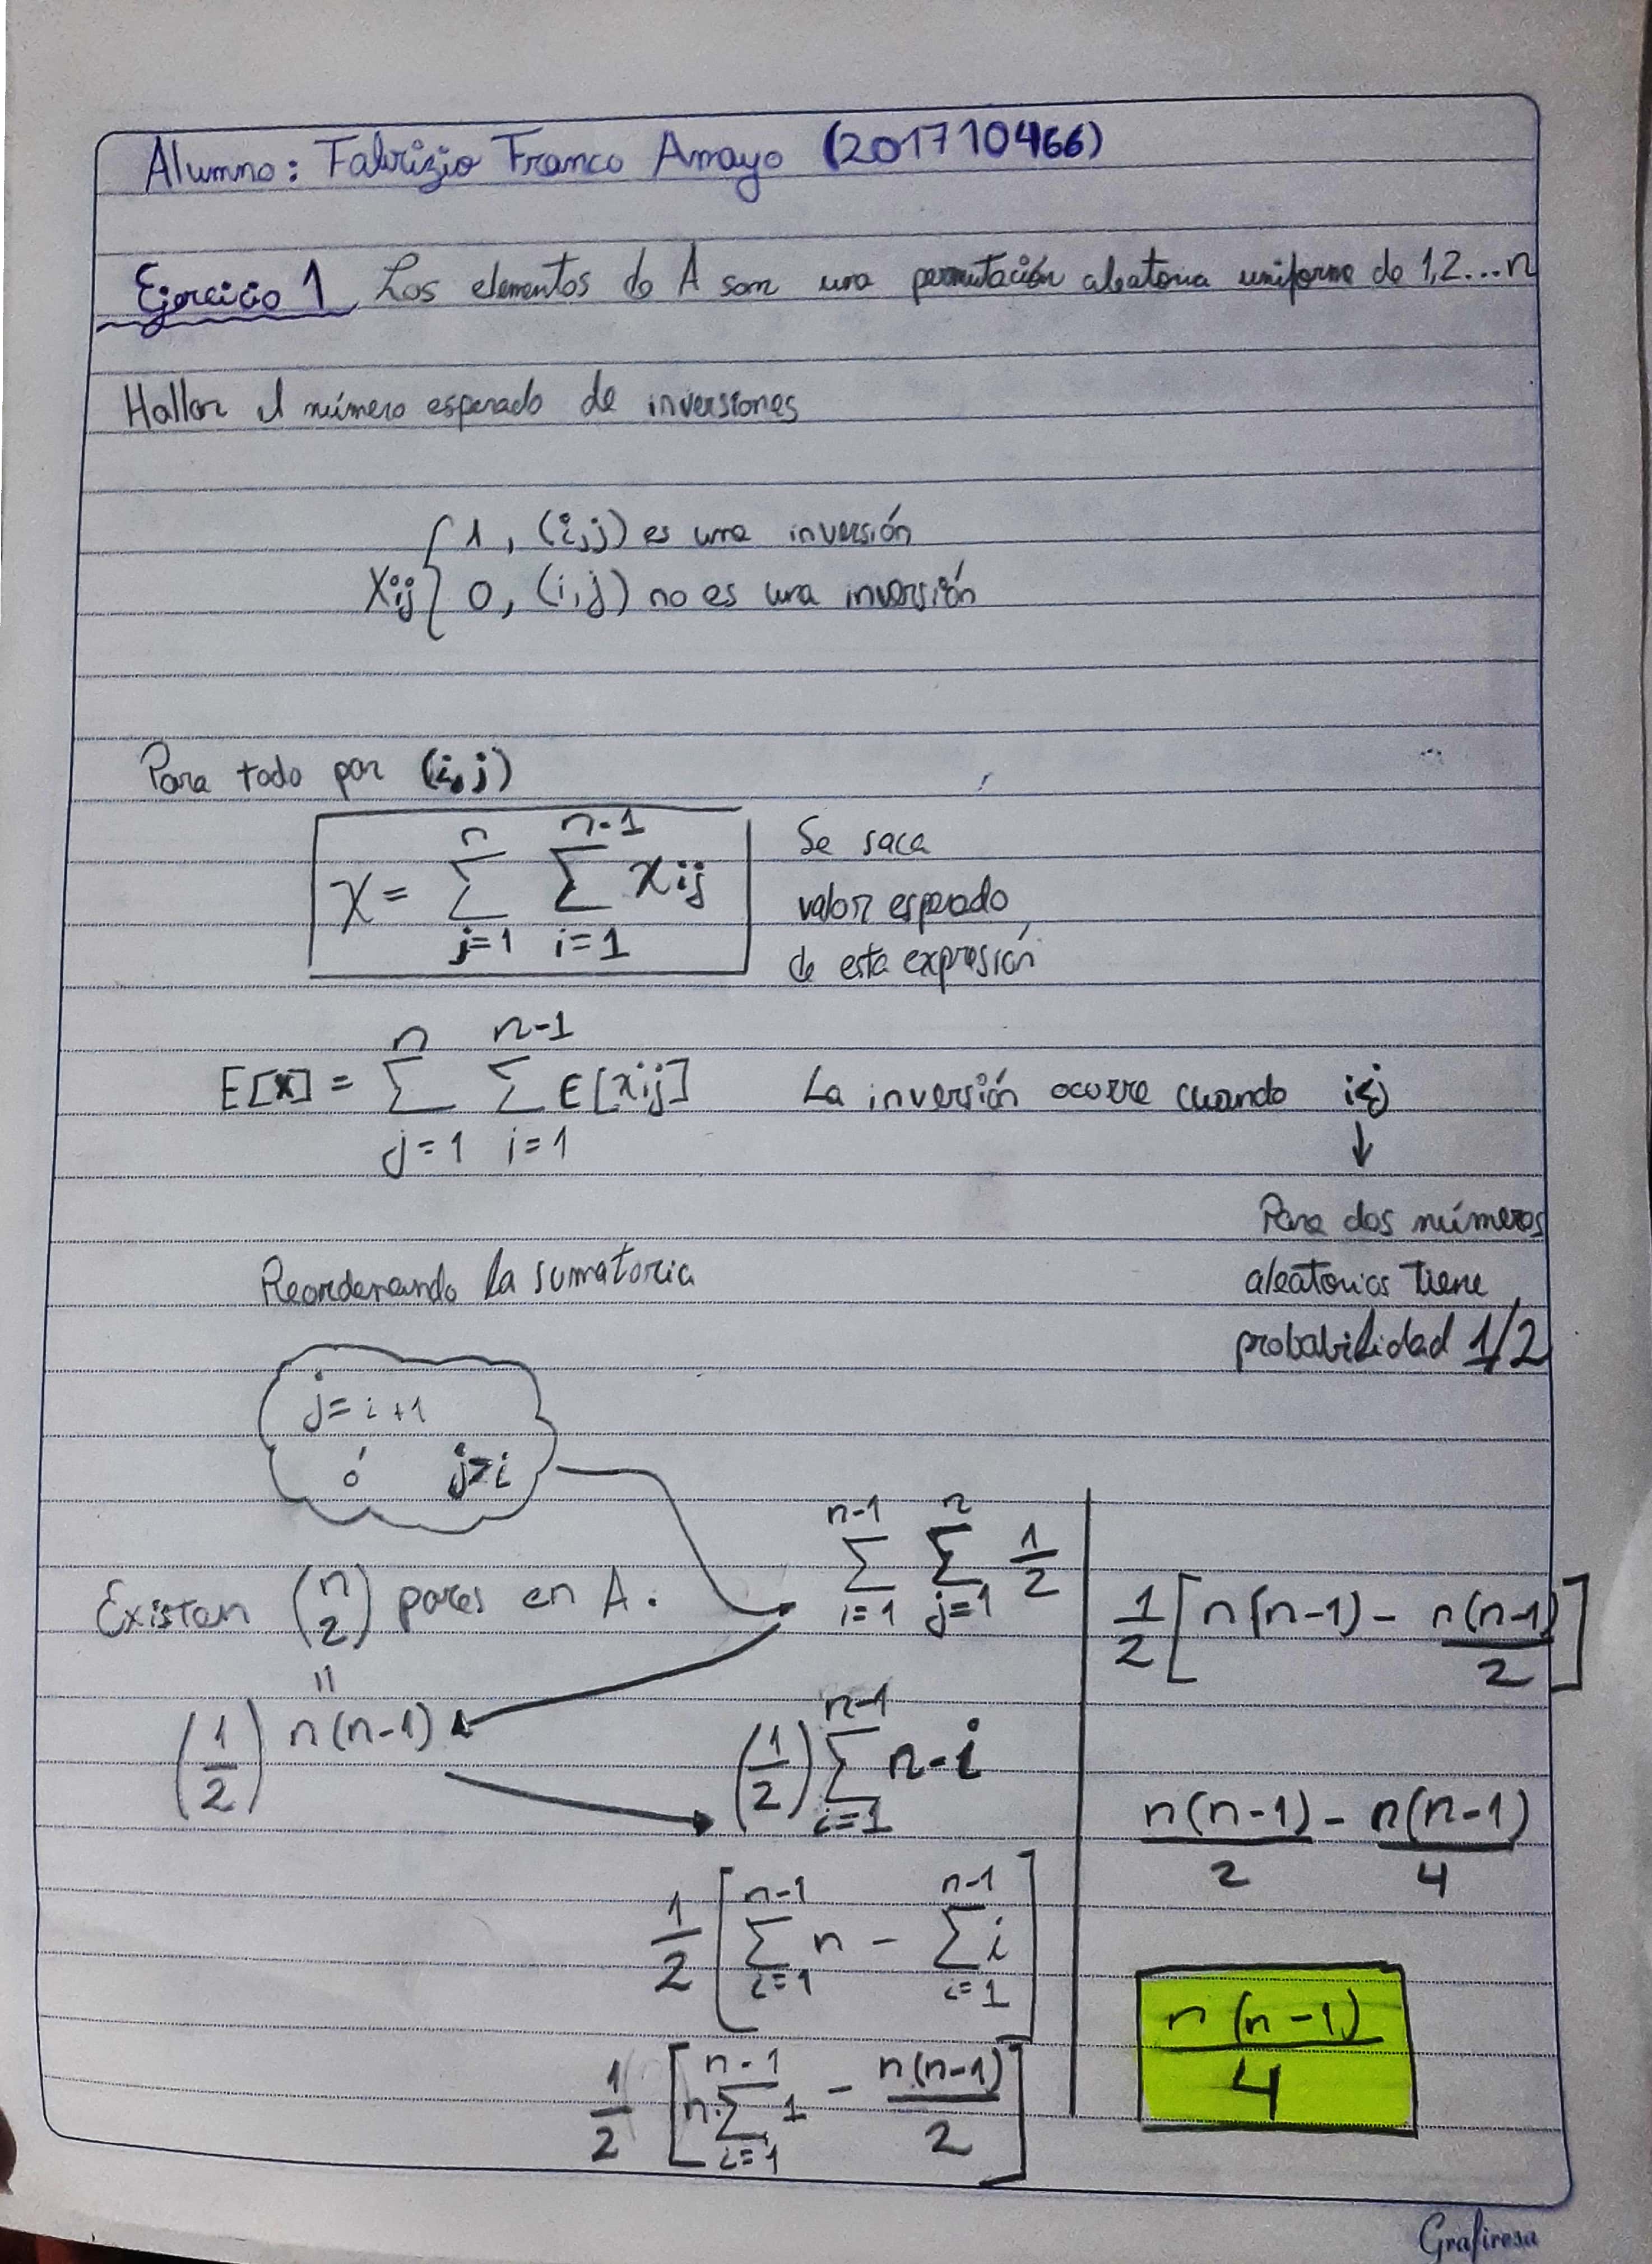 Alumno: Fabrizio Franco Amayo (201710466)
Ejercicio 1 Los elementos de A son una permutación aleatoria uniforme de 1,2...n
Hallar el número esperado de inversiones
Xij { 1, (i,j) es una inversión
0, (i,j) no es una inversión
Para todo par (i,j)
X = ∑_{j=1}^{n} ∑_{i=1}^{n-1} Xij
Se saca
valor esperado
de esta expresión
E[X] = ∑_{j=1}^{n} ∑_{i=1}^{n-1} E[xij]
La inversión ocurre cuando i<j
↓
Para dos números
aleatorios tiene
probabilidad 1/2
Reordenando la sumatoria
j=i+1
ó j>i
∑_{i=1}^{n-1} ∑_{j=1}^{n} 1/2
Existen (n 2) pares en A.
=
(1/2) n(n-1)
(1/2) ∑_{i=1}^{n-1} n-i
1/2 [∑_{i=1}^{n-1} n - ∑_{i=1}^{n-1} i]
1/2 [n·∑_{i=1}^{n-1} 1 - n(n-1)/2]
1/2 [n(n-1) - n(n-1)/2]
n(n-1)/2 - n(n-1)/4
n(n-1)/4
Grafiresa